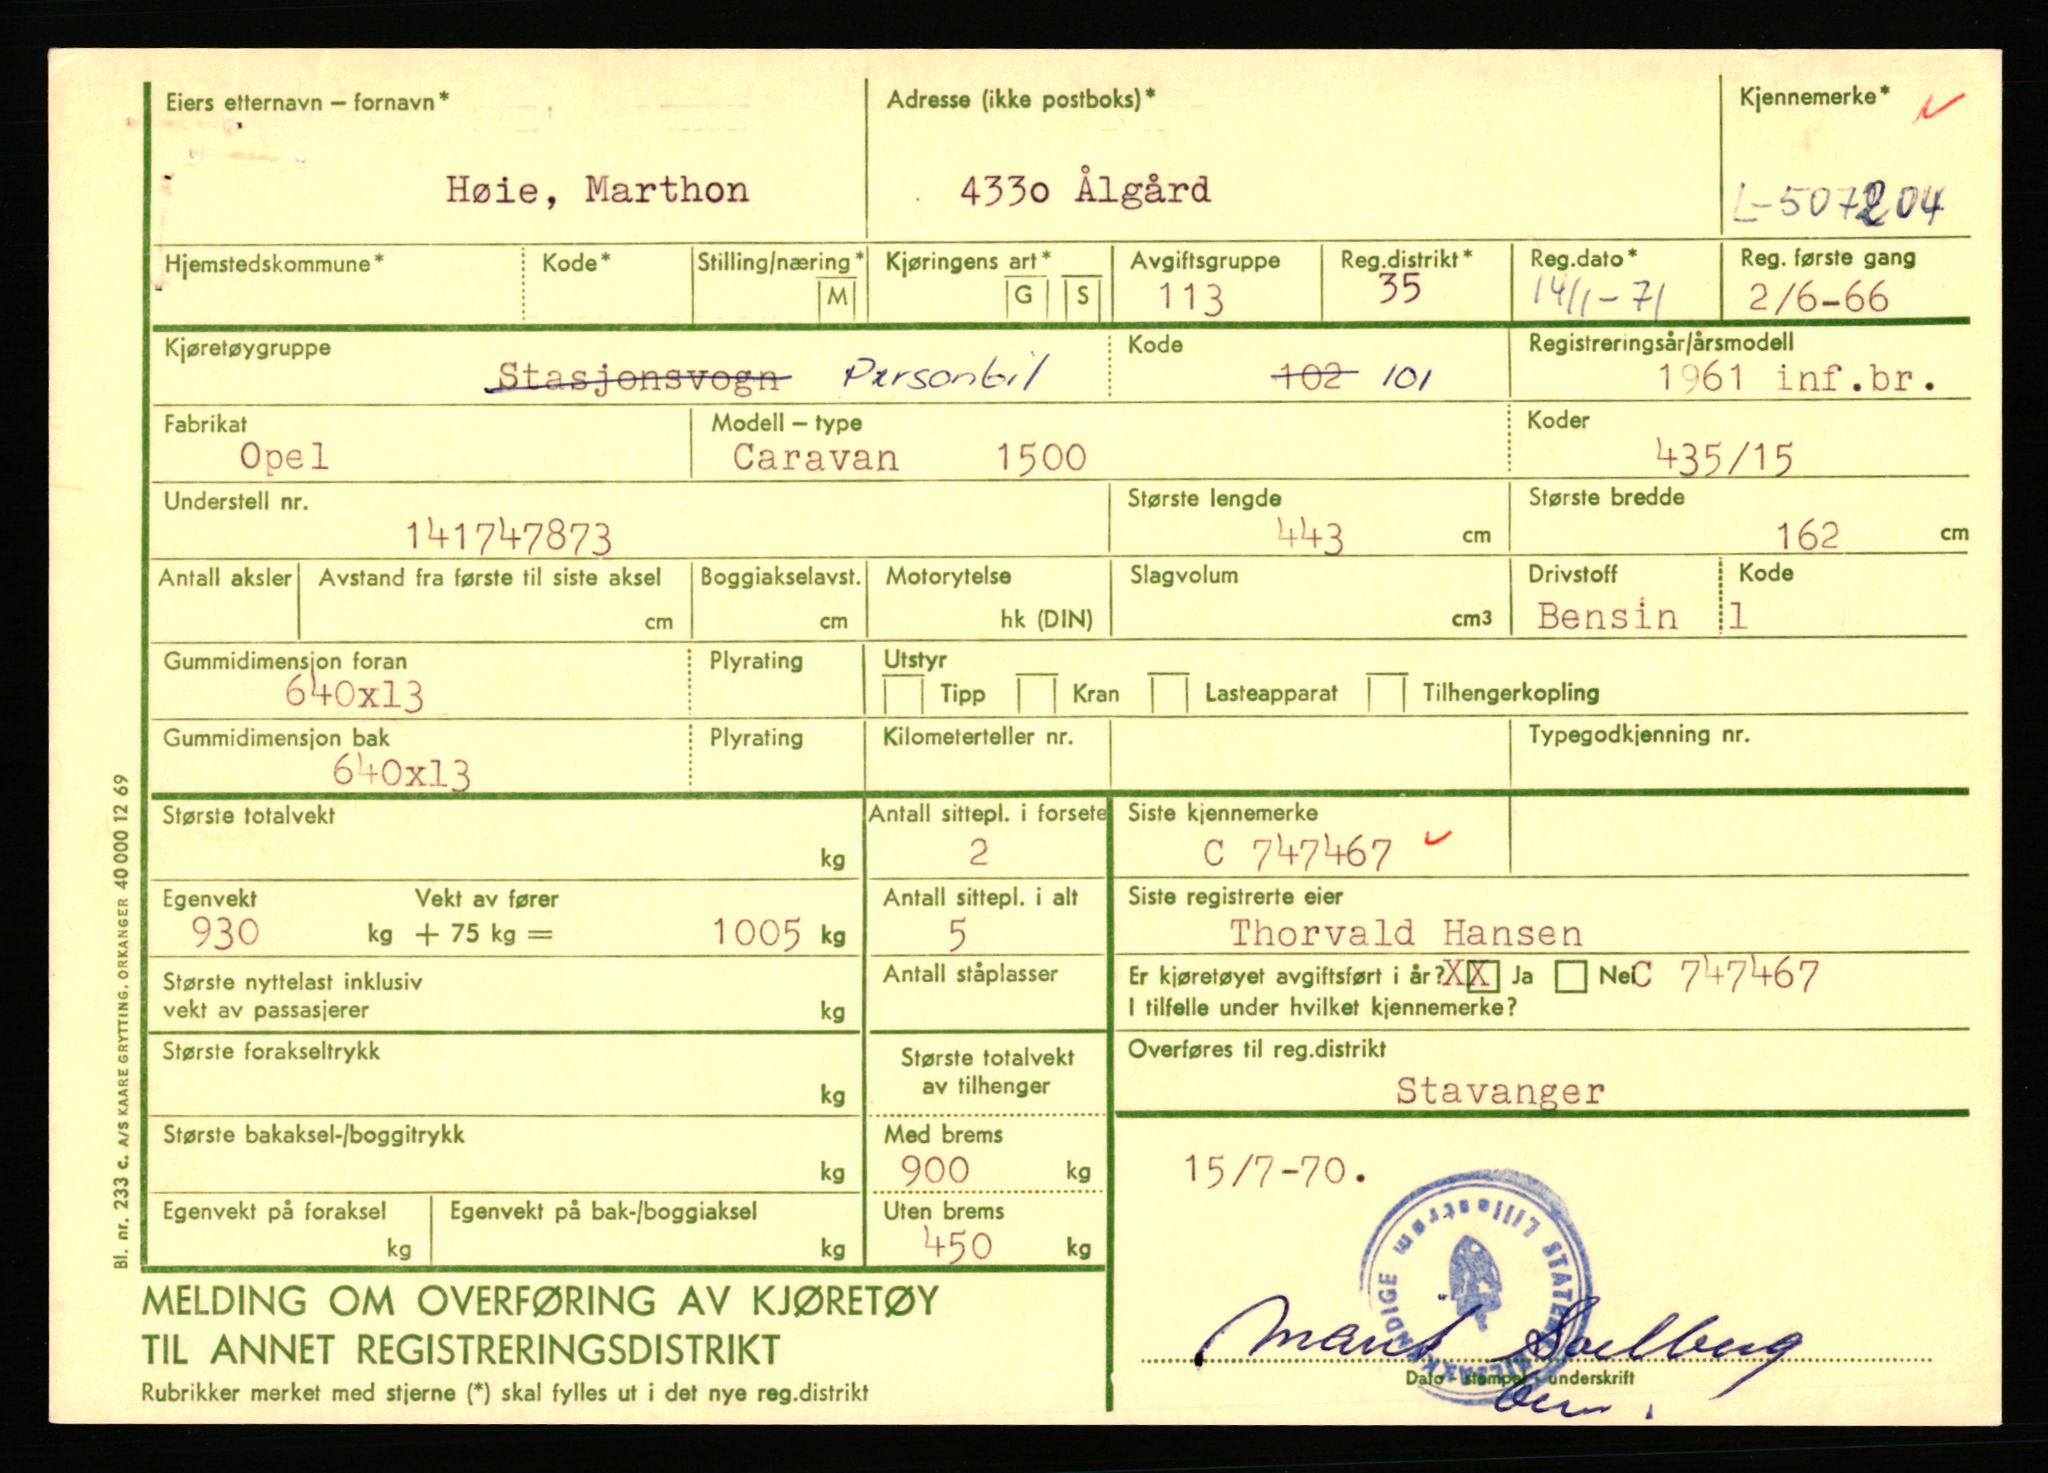 Eiers etternavn – fornavn* Adresse (ikke postboks)* Kjennemerke*
Høie, Marthon 4330 Ålgård L-507204
Hjemstedskommune* Kode* Stilling/næring* M Kjøringens art* G S Avgiftsgruppe Reg.distrikt* Reg.dato* Reg. første gang
113 35 14/1-71 2/6-66
Kjøretøygruppe Kode Registreringsår/årsmodell
Stasjonsvogn Personbil 102 101 1961 inf.br.
Fabrikat Modell – type Koder
Opel Caravan 1500 435/15
Understell nr. Største lengde Største bredde
141747873 443 cm 162 cm
Antall aksler Avstand fra første til siste aksel Boggiakselavst. Motorytelse Slagvolum Drivstoff Kode
cm cm hk (DIN) cm3 Bensin 1
Gummidimensjon foran Plyrating Utstyr
640x13 Tipp Kran Lasteapparat Tilhengerkopling
Gummidimensjon bak Plyrating Kilometerteller nr. Typegodkjenning nr.
640x13
Største totalvekt Antall sittepl. i forsete Siste kjennemerke
kg 2 C 747467
Egenvekt Vekt av fører Antall sittepl. i alt Siste registrerte eier
930 kg + 75 kg = 1005 kg 5 Thorvald Hansen
Største nyttelast inklusiv Antall ståplasser Er kjøretøyet avgiftsført i år? XX Ja Nei C 747467
vekt av passasjerer kg I tilfelle under hvilket kjennemerke?
Største forakseltrykk Største totalvekt Overføres til reg.distrikt
kg av tilhenger Stavanger
Største bakaksel-/boggitrykk Med brems
kg 900 kg 15/7-70.
Egenvekt på foraksel Egenvekt på bak-/boggiaksel Uten brems
kg kg 450 kg
STATENS BILSAKKYNDIGE Lillestrøm
MELDING OM OVERFØRING AV KJØRETØY
TIL ANNET REGISTRERINGSDISTRIKT
Marit Solberg
Rubrikker merket med stjerne (*) skal fylles ut i det nye reg.distrikt
Dato - stempel - underskrift
Bl. nr. 233 c. A/S KAARE GRYTTING, ORKANGER 40 000 12 69